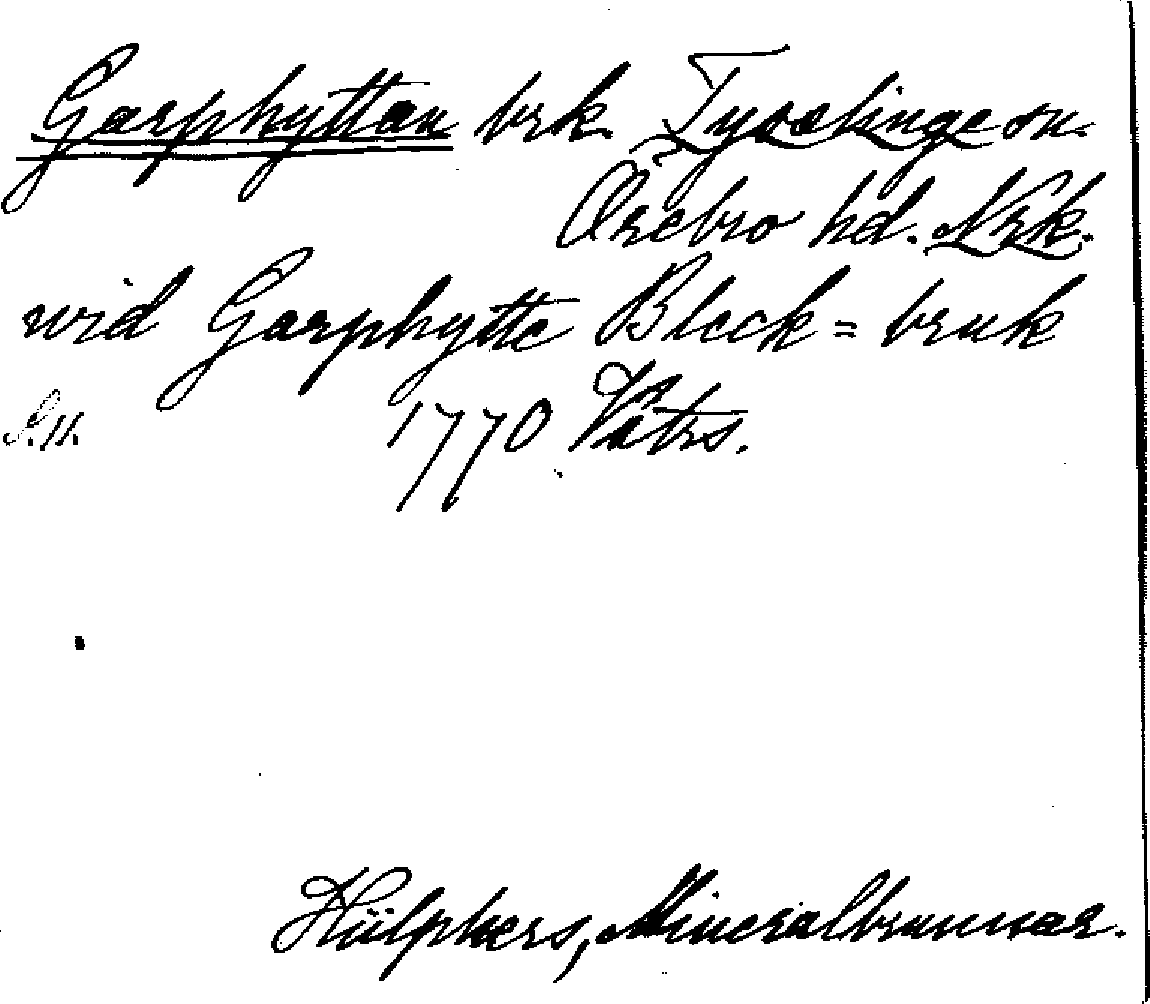 Garphyttan brk. Tysslinge sn.
Örebro hd. Nrk.
wid Garphytte Bleck=bruk
S.H. 1770 Västrs.
Hülphers, Mineralbrunnar.